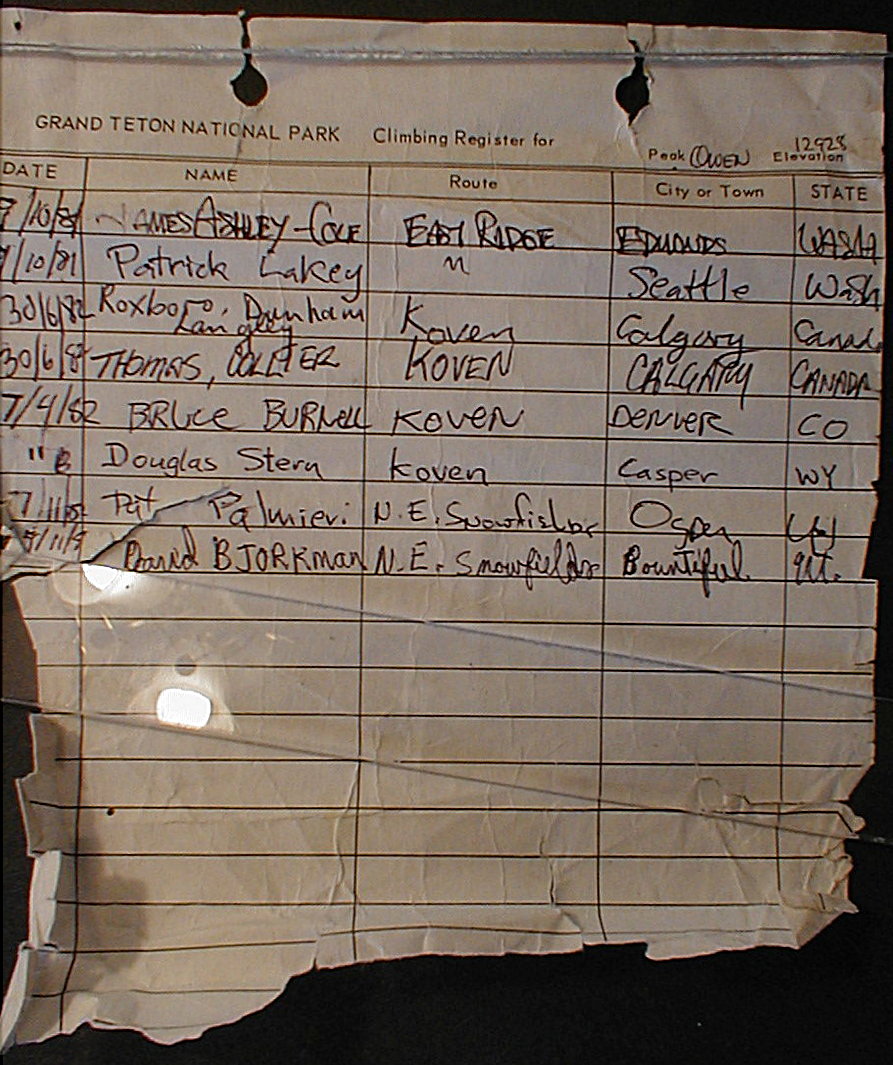 GRAND TETON NATIONAL PARK Climbing Register for Peak OWEN Elevation 12928
DATE NAME Route City or Town STATE
7/10/81 JAMES ASHLEY-COLE EAST RIDGE EDMONDS WASH
7/10/81 Patrick Lakey " Seattle Wash
30/6/82 Roxboro, Dunham Langley Koven Calgary Canad
30/6/82 THOMAS, COLLIER KOVEN CALGARY CANADA
7/4/82 BRUCE BURNELL KOVEN DENVER CO
" Douglas Stern Koven Casper WY
Pat Palmieri N.E. Snowfields Ogden
David BJORKMAN N.E. Snowfields Bountiful Ut.